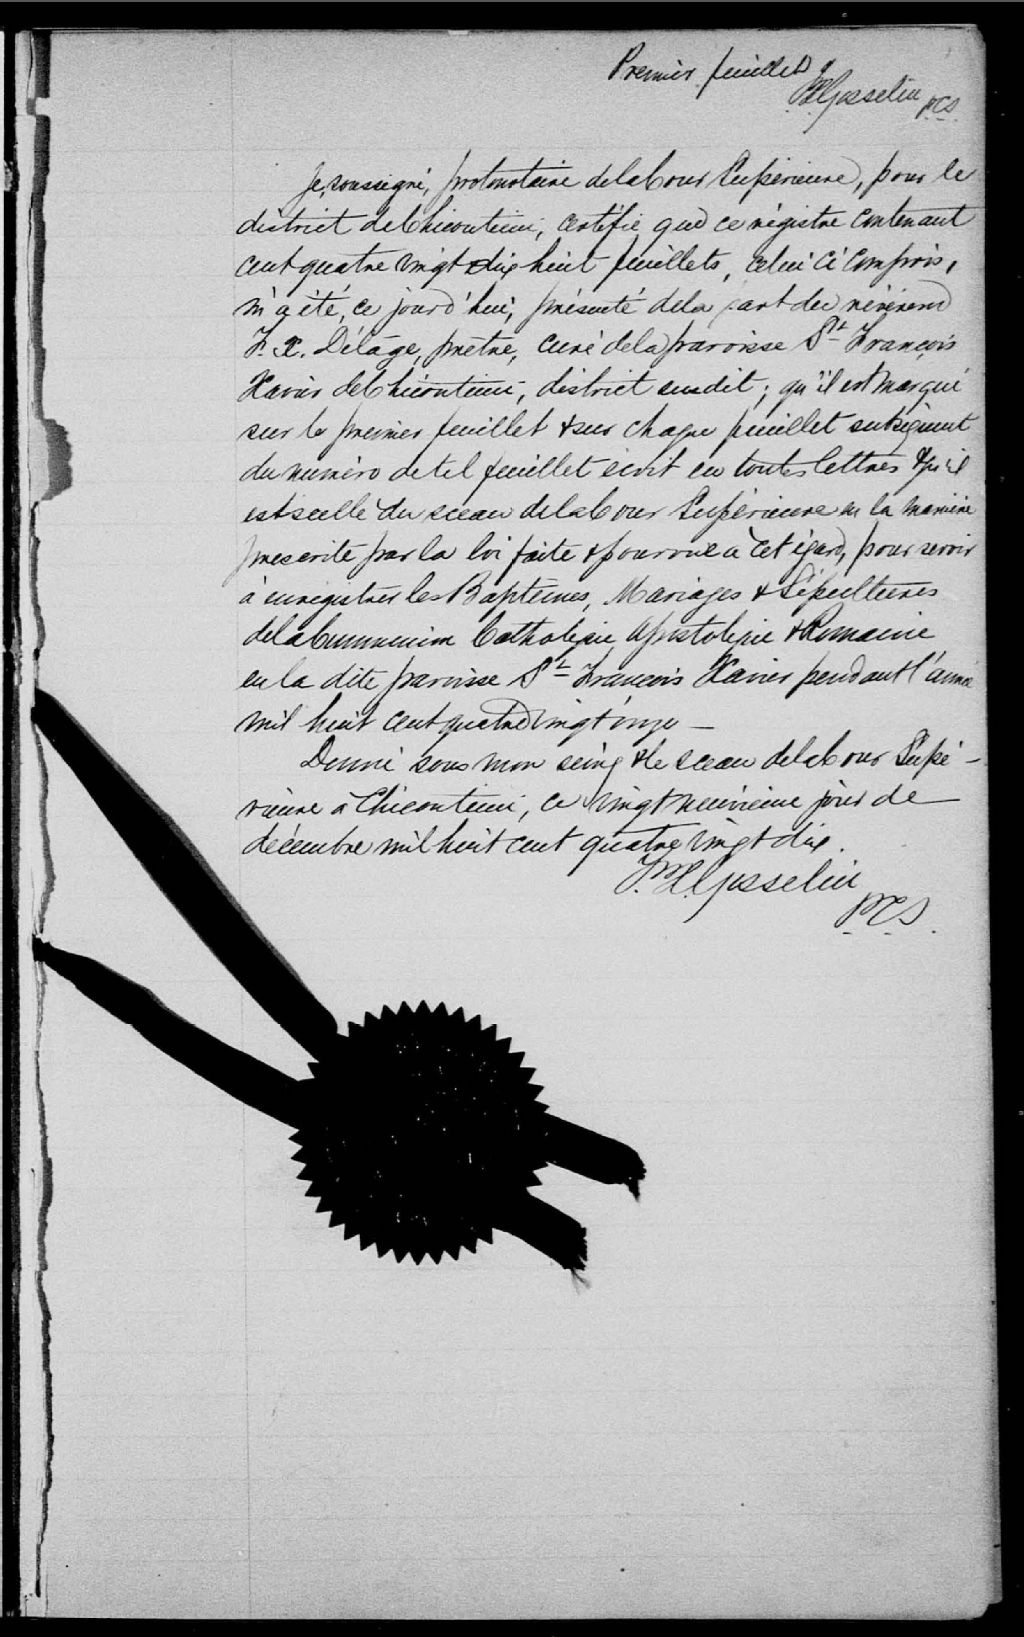 Premier feuillet
F. H. Gosselin
P.C.S.
Je, soussigné, protonotaire de la Cour Supérieure, pour le
district de Chicoutimi, certifie que ce régistre contenant
cent quatre vingt dix huit feuillets, celui ci compris,
m'a été, ce jourd'hui, présenté de la part du révérend
F. X. Délâge, prêtre, curé de la paroisse St François
Xavier de Chicoutimi, district susdit; qu'il est marqué
sur le premier feuillet & sur chaque feuillet subséquent
du numéro de tel feuillet écrit en toutes lettres & qu'il
est scellé du sceau de la Cour Supérieure en la manière
prescrite par la loi faite & pourvue à cet égard, pour servir
à enregistrer les Baptêmes, Mariages & Sépultures
de la Communion Catholique Apostolique & Romaine
en la dite paroisse St François Xavier pendant l'année
mil huit cent quatre vingt onze —
Donné sous mon seing & le sceau de la Cour Supé-
rieure à Chicoutimi, ce vingt neuvième jour de
décembre mil huit cent quatre vingt dix.
F. H. Gosselin
P.C.S.